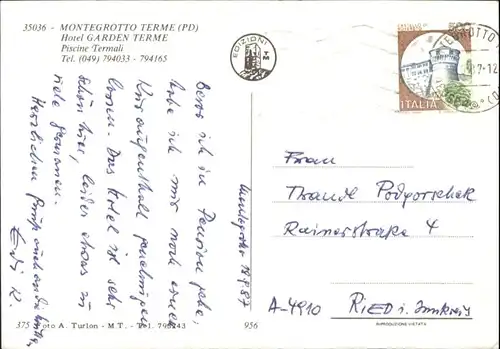 35036 - MONTEGROTTO TERME (PD)
Hotel GARDEN TERME
Piscine Termali
Tel. (049) 794033 - 794165
EDIZIONI MT
ITALIA
Montegrotto 18.9.87
Bevor ich in Pension gehe,
habe ich mir noch einen
Kuraufenthalt genehmigen
lassen. Das Hotel ist sehr
schön hier, leider etwas zu
viele Germanen.
Herzlichen Gruß auch an die
Edi K.
Frau
Traude Podgorschek
Rainerstraße 4
A-4910 RIED i. Innkreis
375 Foto A. Turlon - M.T. - Tel. 793243
956
RIPRODUZIONE VIETATA